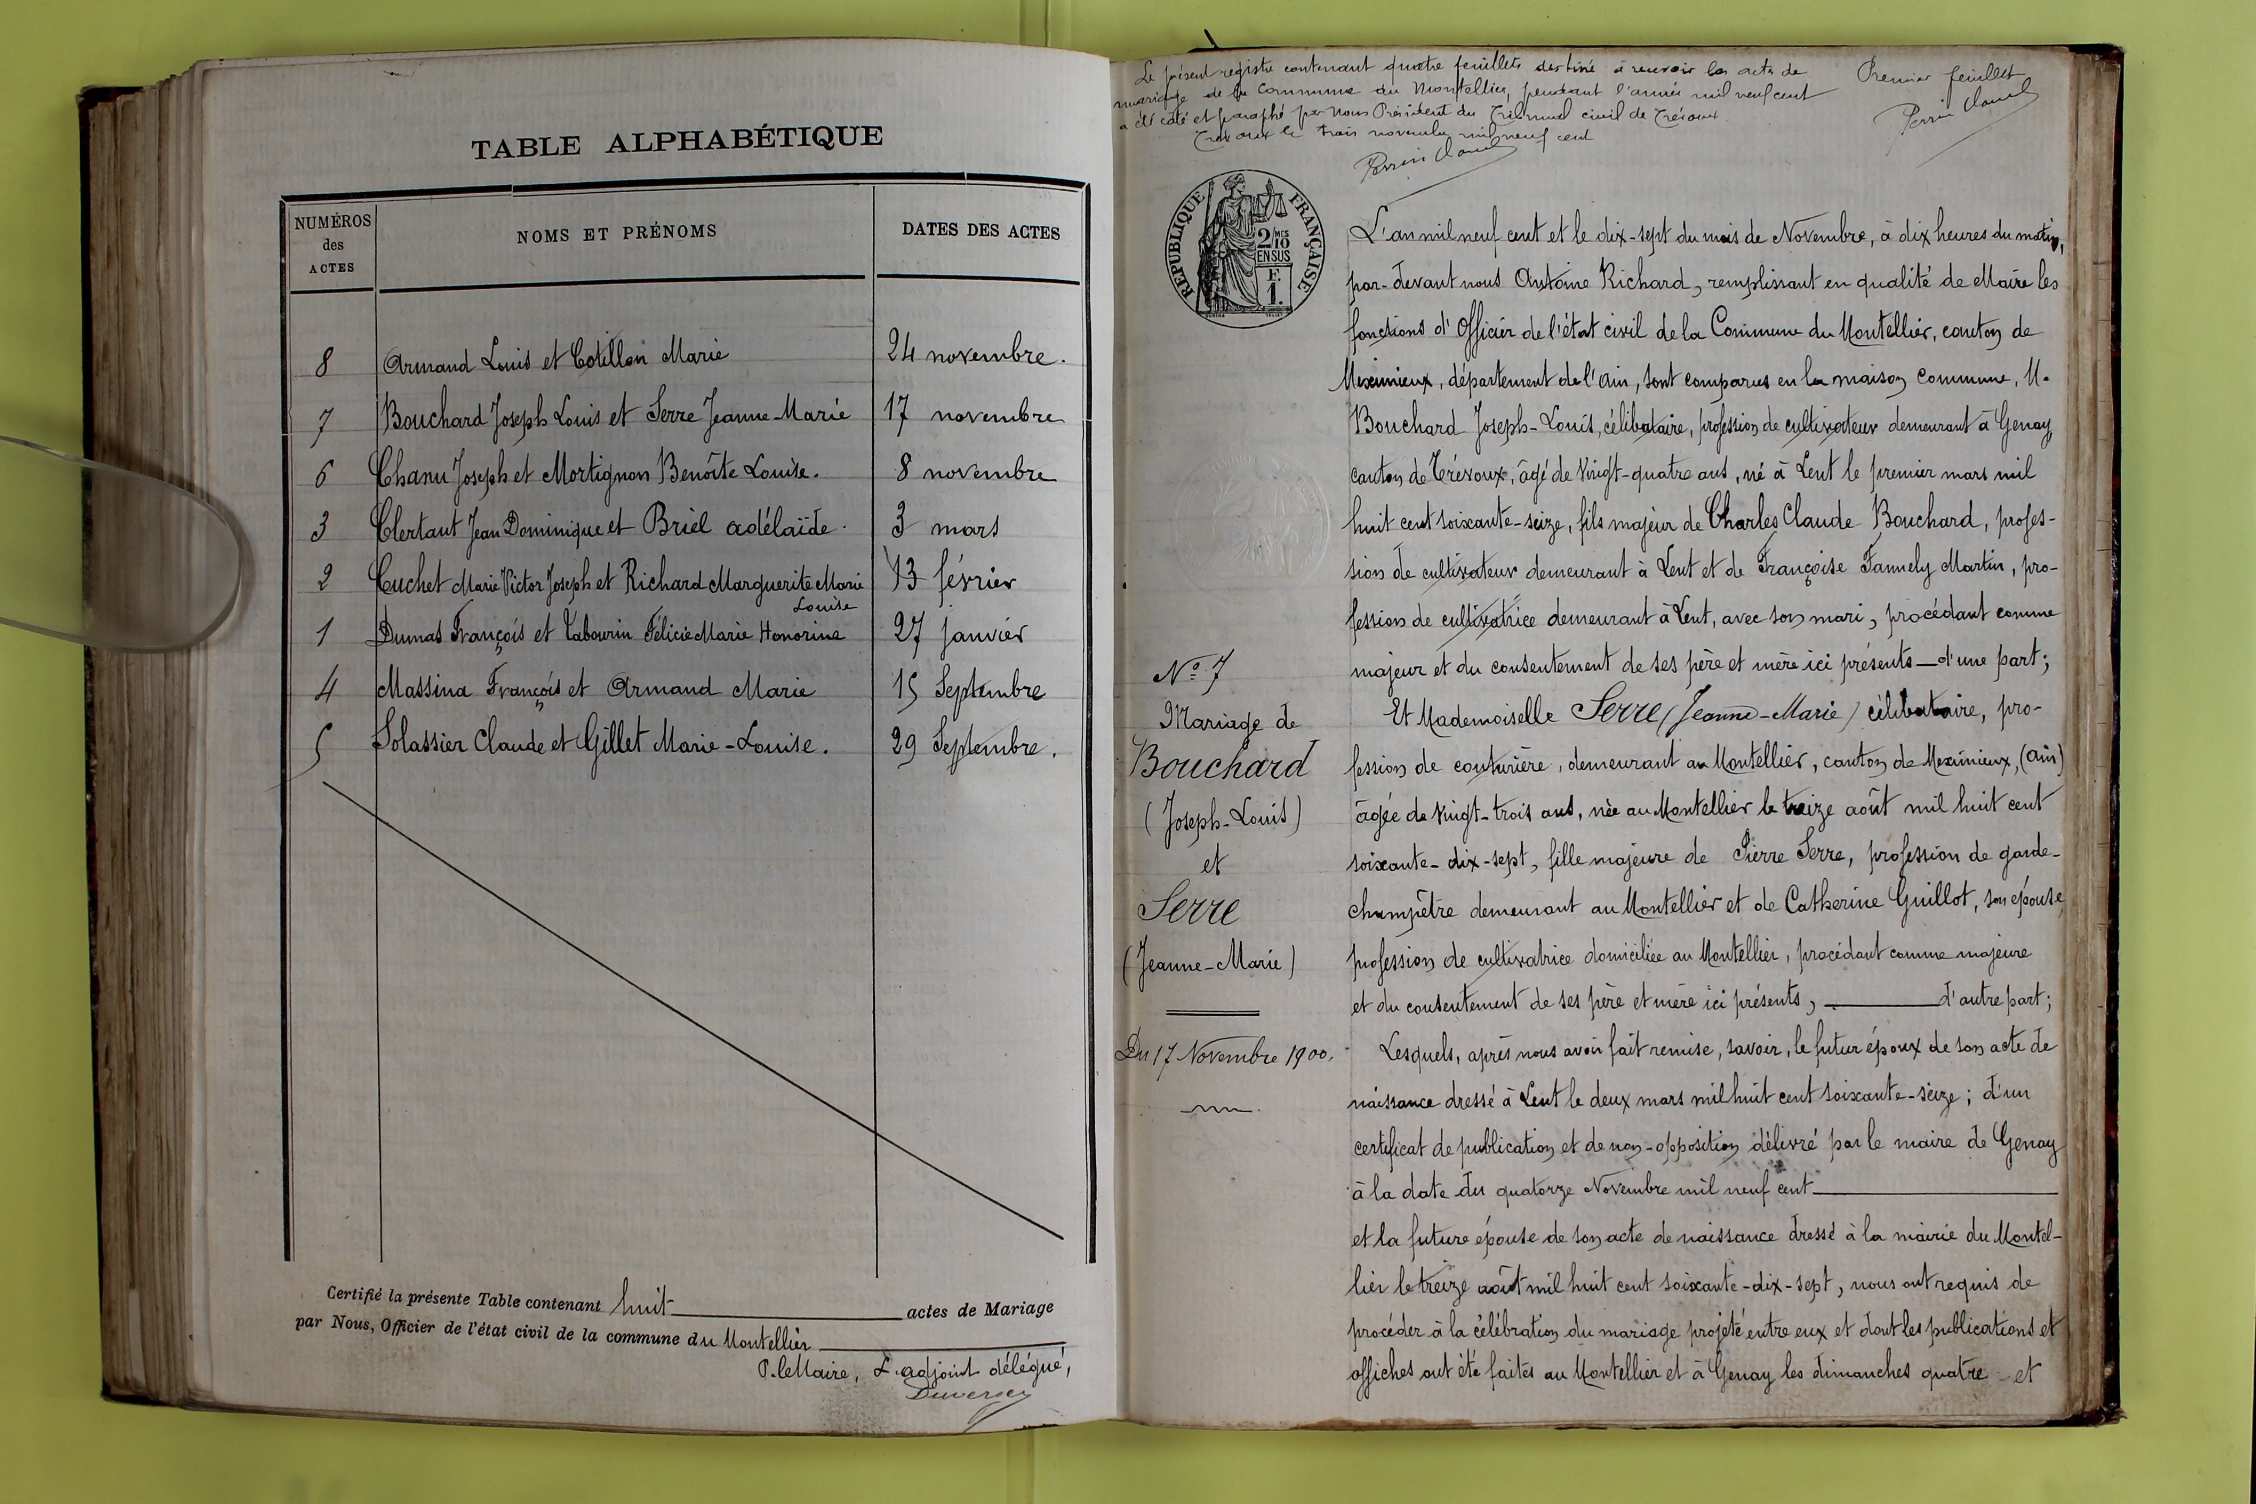 TABLE ALPHABÉTIQUE
NUMÉROS des ACTES NOMS ET PRÉNOMS DATES DES ACTES
8 Armand Louis et Cotillon Marie 24 novembre.
7 Bouchard Joseph Louis et Serre Jeanne-Marie 17 novembre
6 Chanu Joseph et Mortignon Benoîte Louise. 8 novembre
3 Clertant Jean Dominique et Briel adélaïde. 3 mars
2 Cuchet Marie Victor Joseph et Richard Marguerite Marie 13 février
Louise
1 Dumas François et Tabourin Félicie Marie Honorine 27 janvier
4 Massina François et Armand Marie 15 Septembre
5 Solassier Claude et Gillet Marie-Louise. 29 Septembre.
Certifié la présente Table contenant huit actes de Mariage
par Nous, Officier de l'état civil de la commune du Montellier
P. le Maire, L'adjoint délégué,
Le présent registre contenant quatre feuillets destiné à recevoir les actes de
mariage de la Commune du Montellier, pendant l'année mil neuf cent
a été coté et paraphé par Nous Président du Tribunal civil de Trévoux
Trévoux le trois novembre mil neuf cent
Premier feuillet
RÉPUBLIQUE FRANÇAISE
2/10 MES
EN SUS
F.
1.
L'an mil neuf cent et le dix-sept du mois de Novembre, à dix heures du matin,
par-devant nous Antoine Richard, remplissant en qualité de Maire les
fonctions d'Officier de l'état civil de la Commune du Montellier, canton de
Meximieux, département de l'Ain, sont comparus en la maison commune, M.
Bouchard Joseph-Louis, célibataire, profession de cultivateur demeurant à Genay
canton de Trévoux, âgé de vingt-quatre ans, né à Lent le premier mars mil
huit cent soixante-seize, fils majeur de Charles Claude Bouchard, profes-
sion de cultivateur demeurant à Lent et de Françoise Fannely Martin, pro-
fession de cultivatrice demeurant à Lent, avec son mari, procédant comme
majeur et du consentement de ses père et mère ici présents — d'une part;
Et Mademoiselle Serre (Jeanne-Marie) célibataire, pro-
fession de couturière, demeurant au Montellier, canton de Meximieux, (Ain)
âgée de vingt-trois ans, née au Montellier le treize août mil huit cent
soixante-dix-sept, fille majeure de Pierre Serre, profession de garde-
champêtre demeurant au Montellier et de Catherine Guillot, son épouse
profession de cultivatrice domiciliée au Montellier, procédant comme majeure
et du consentement de ses père et mère ici présents, — d'autre part;
Lesquels, après nous avoir fait remise, savoir, le futur époux de son acte de
naissance dressé à Lent le deux mars mil huit cent soixante-seize; d'un
certificat de publication et de non-opposition délivré par le maire de Genay
à la date du quatorze Novembre mil neuf cent —
et la future épouse de son acte de naissance dressé à la mairie du Montel-
lier le treize août mil huit cent soixante-dix-sept, nous ont requis de
procéder à la célébration du mariage projeté entre eux et dont les publications et
affiches ont été faites au Montellier et à Genay les dimanches quatre et
No. 7
Mariage de
Bouchard
(Joseph-Louis)
et
Serre
(Jeanne-Marie)
Du 17 Novembre 1900.